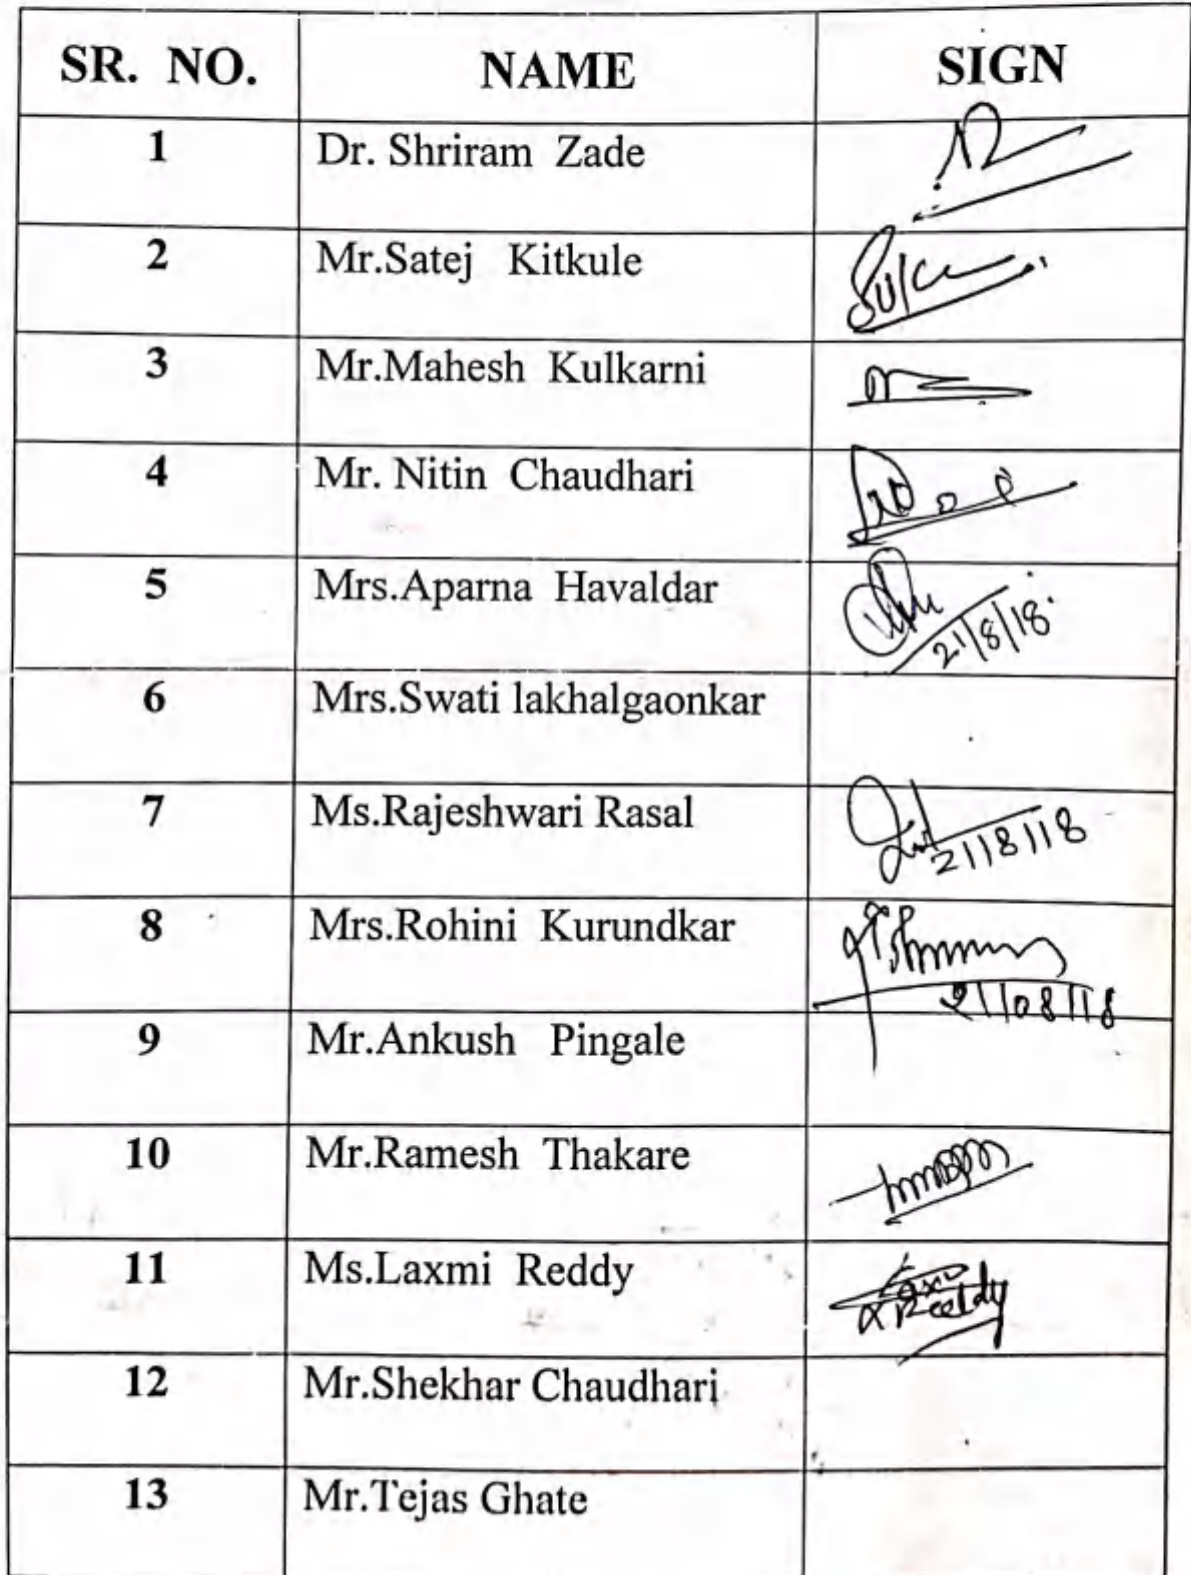 SR. NO. NAME SIGN
1 Dr. Shriram Zade
2 Mr.Satej Kitkule
3 Mr.Mahesh Kulkarni
4 Mr. Nitin Chaudhari
5 Mrs.Aparna Havaldar 21/8/18
6 Mrs.Swati lakhalgaonkar
7 Ms.Rajeshwari Rasal 21/8/18
8 Mrs.Rohini Kurundkar 21/08/18
9 Mr.Ankush Pingale
10 Mr.Ramesh Thakare
11 Ms.Laxmi Reddy Reddy
12 Mr.Shekhar Chaudhari
13 Mr.Tejas Ghate